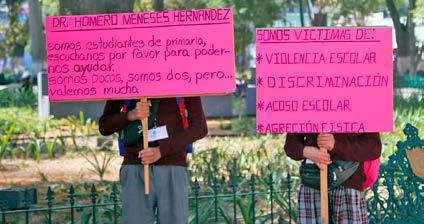 DR. HOMERO MENESES HERNÁNDEZ
somos estudiantes de primaria,
escuchanos por favor para poder-
nos ayudar.
somos pocos, somos dos, pero...
valemos mucha
SOMOS VICTIMAS DE:
* VIOLENCIA ESCOLAR
* DISCRIMINACIÓN
* ACOSO ESCOLAR
* AGRECIÓN FISICA